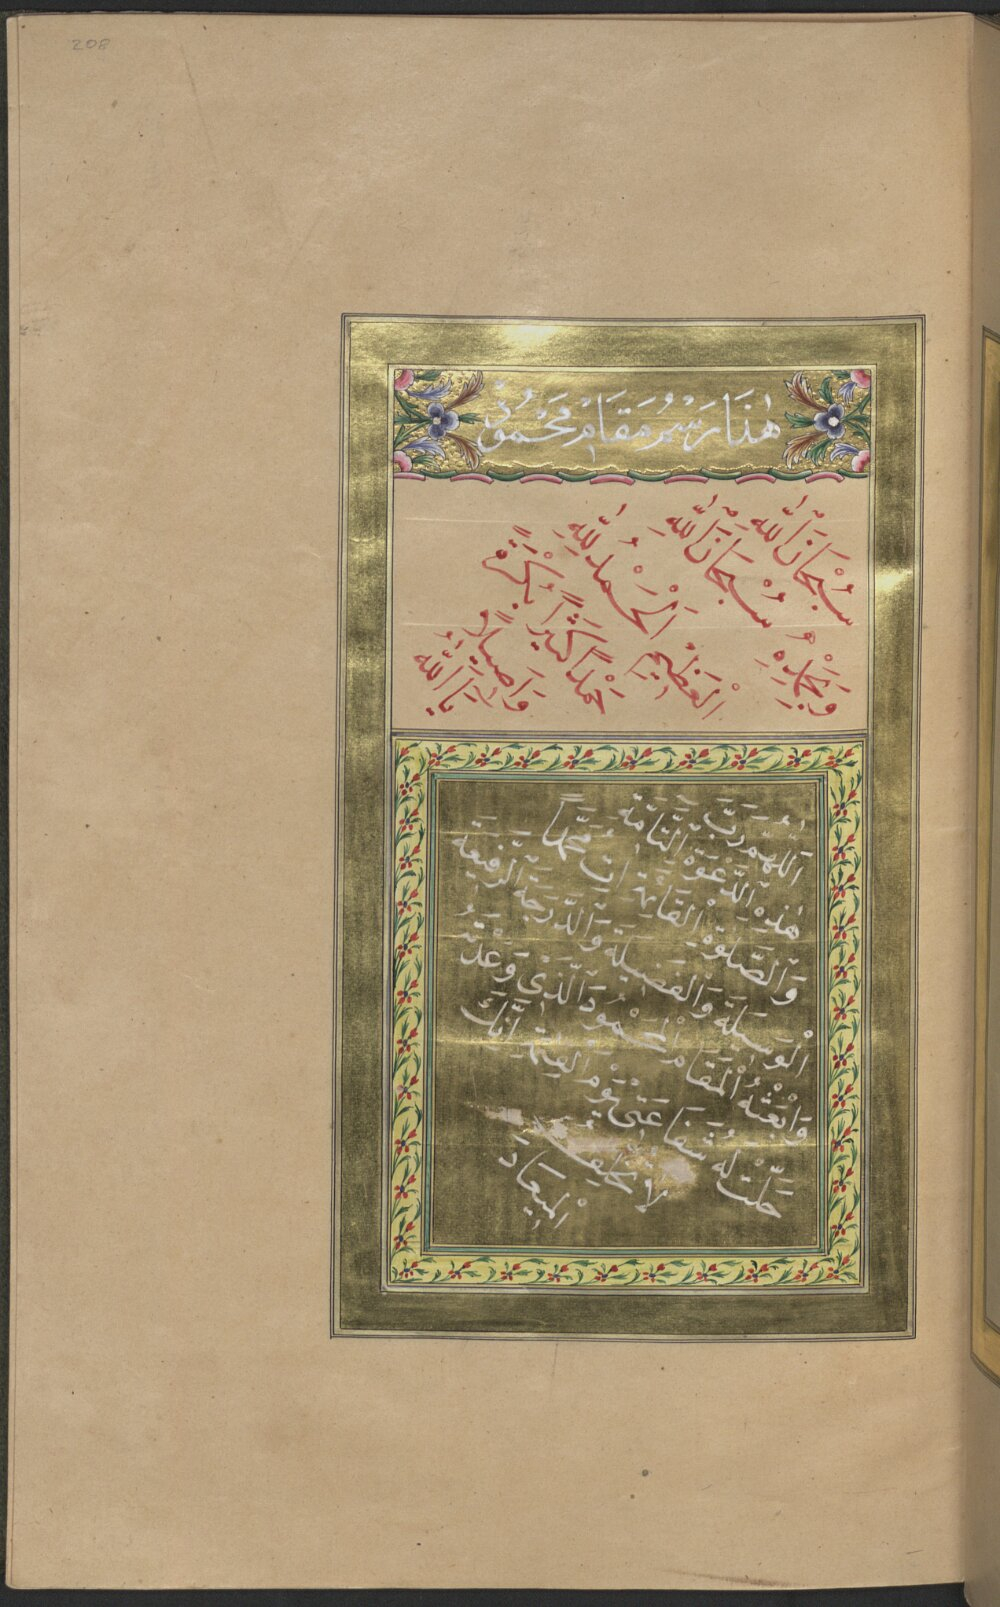 208
هٰذَا رَسْمُ مَقَامِ مَحْمُودٌ
سُبْحَانَ اللّٰهِ
وَبِحَمْدِهِ سُبْحَانَ اللّٰهِ
الْعَظِيمِ الْحَمْدُ لِلّٰهِ
حَمْدًا كَثِيرًا بُكْرَةً
وَاَصِيلًا
يَا اَللّٰهُ
اَللّٰهُمَّ رَبَّ
هٰذِهِ الدَّعْوَةِ التَّامَّةِ
وَالصَّلٰوةِ الْقَائِمَةِ اٰتِ مُحَمَّدًا
الْوَسِيلَةَ وَالْفَضِيلَةَ وَالدَّرَجَةَ الرَّفِيعَةَ
وَابْعَثْهُ الْمَقَامَ الْمَحْمُودَ الَّذِي وَعَدْتَهُ
حَلَّتْ لَهُ شَفَاعَتِى يَوْمَ الْقِيٰمَةِ اِنَّكَ
لَا تُخْلِفُ
الْمِيعَادَ